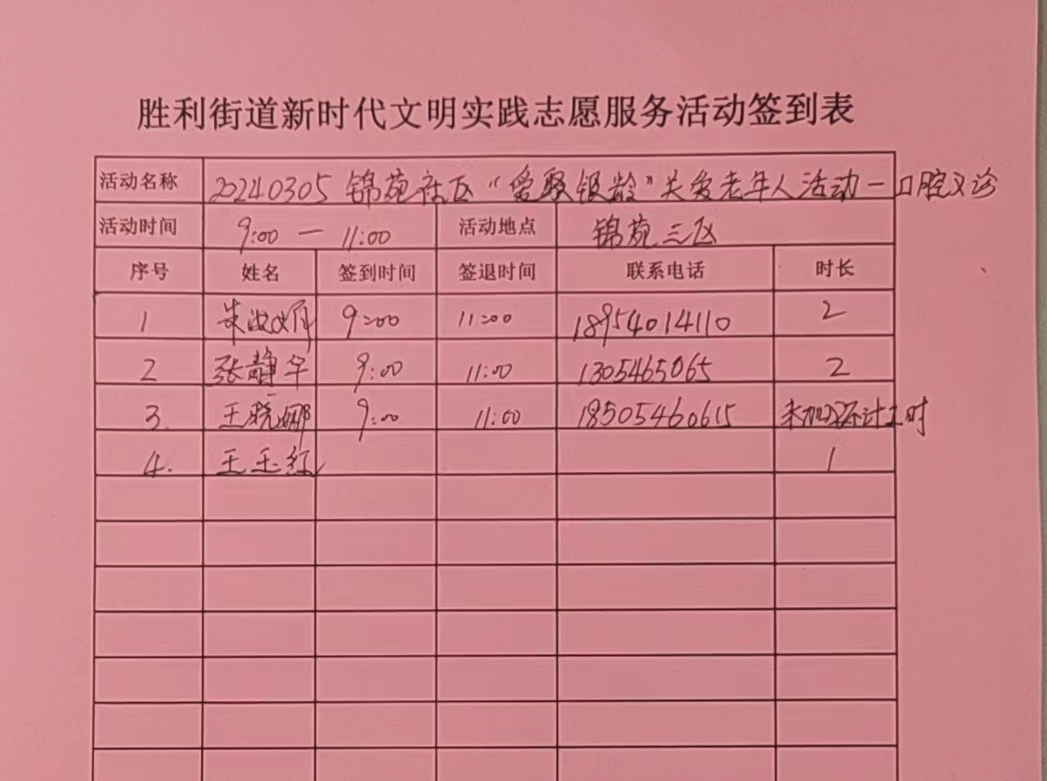 胜利街道新时代文明实践志愿服务活动签到表
活动名称 20240305 锦苑社区“爱聚银龄”关爱老年人活动一口腔义诊
活动时间 9:00 — 11:00 活动地点 锦苑三区
序号 姓名 签到时间 签退时间 联系电话 时长
1 9:00 11:00 18954014110 2
2 张静华 9:00 11:00 1305465065 2
3. 王晓娜 9:00 11:00 18505460615 计工时
4. 王玉红 1